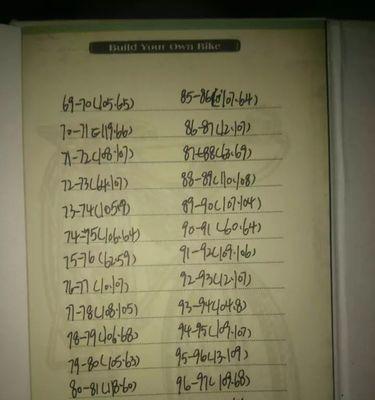 Build Your Own Bike
69-70(105.65)
70-71(119.66)
71-72(108.107)
72-73(64.107)
73-74(105.59)
74-75(106.64)
75-76(62.59)
76-77(10.107)
77-78(108.105)
78-79(106.68)
79-80(105.63)
80-81(118.60)
85-86(107.64)
86-87(12.107)
87-88(63.69)
88-89(110.108)
89-90(107.104)
90-91(60.64)
91-92(109.106)
92-93(12.107)
93-94(104.8)
94-95(109.107)
95-96(13.109)
96-97(109.68)